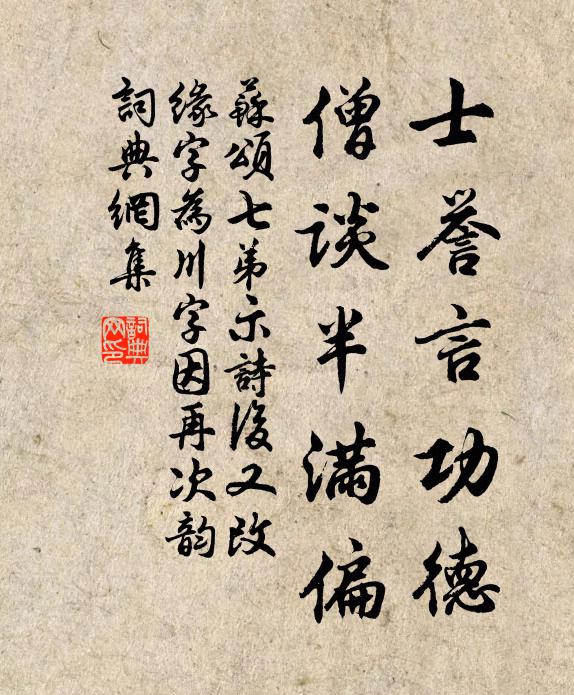 士誉言功德
僧談半滿偏
蘇頌七弟示詩後又改
緣字為川字因再次韵
詞典網集
詞典
网印